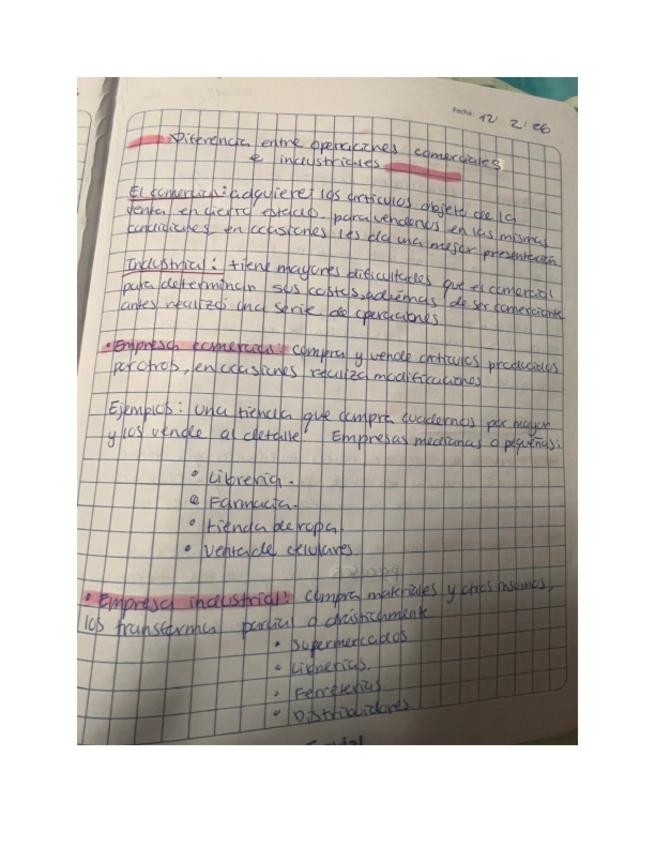 Fecha: 12 2 26
Diferencia entre operaciones comerciales
e industriales
El comercial: adquiere los artículos objeto de la
venta en cierto estado, para venderlos en las mismas
condiciones, en ocasiones les da una mejor presentación
Industrial: tiene mayores dificultades que el comercial
para determinar sus costos, además de ser comerciante
antes realizó una serie de operaciones
• Empresa comercial: compra y vende artículos producidos
por otros, en ocasiones realiza modificaciones
Ejemplos: una tienda que compra cuadernos por mayor
y los vende al detalle Empresas medianas o pequeñas:
• Librería.
• Farmacia.
• tienda de ropa
• Venta de celulares
• Empresa industrial: compra materiales y otros insumos,
los transforma parcial o drásticamente
• Supermercados
• Librerías.
• Ferreterías
• Distribuidores